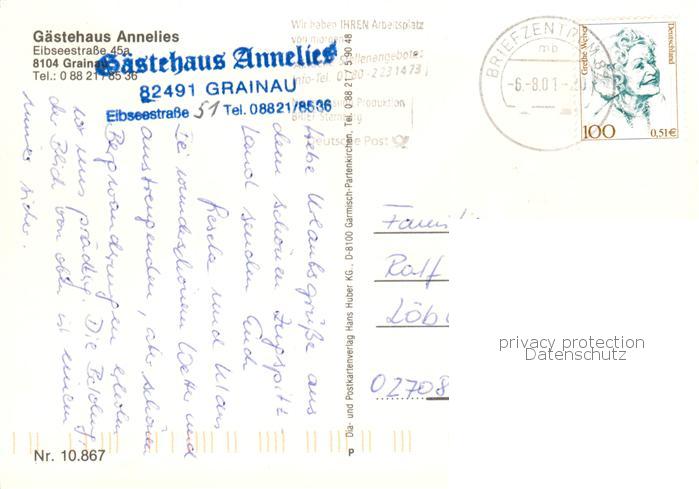 Gästehaus Annelies
Eibseestraße 45a
8104 Grainau
Tel.: 0 88 21 / 85 36
Gästehaus Annelies
82491 GRAINAU
Eibseestraße 51 Tel. 08821/8536
Wir haben IHREN Arbeitsplatz
von morgen
Stellenangebote:
Info-Tel.
Produktion
Deutsche Post
BRIEFZENTRUM
mb
-6.-8.01-
Grethe Weiser
Deutschland
100
0,51€
Liebe Urlaubsgrüße aus
dem schönen Zugspitz-
land senden Euch
und Klaus
Bei wunderschönem Wetter und
anstrengenden, aber schönen
Bergwanderungen erholen
wir uns prächtig. Die
der Blick von oben ist
Dia- und Postkartenverlag Hans Huber KG., D-8100 Garmisch-Partenkirchen, Tel. 0 88 21 / 5 90 48
Fami
Ralf
Löb
02708
privacy protection
Datenschutz
Nr. 10.867
P